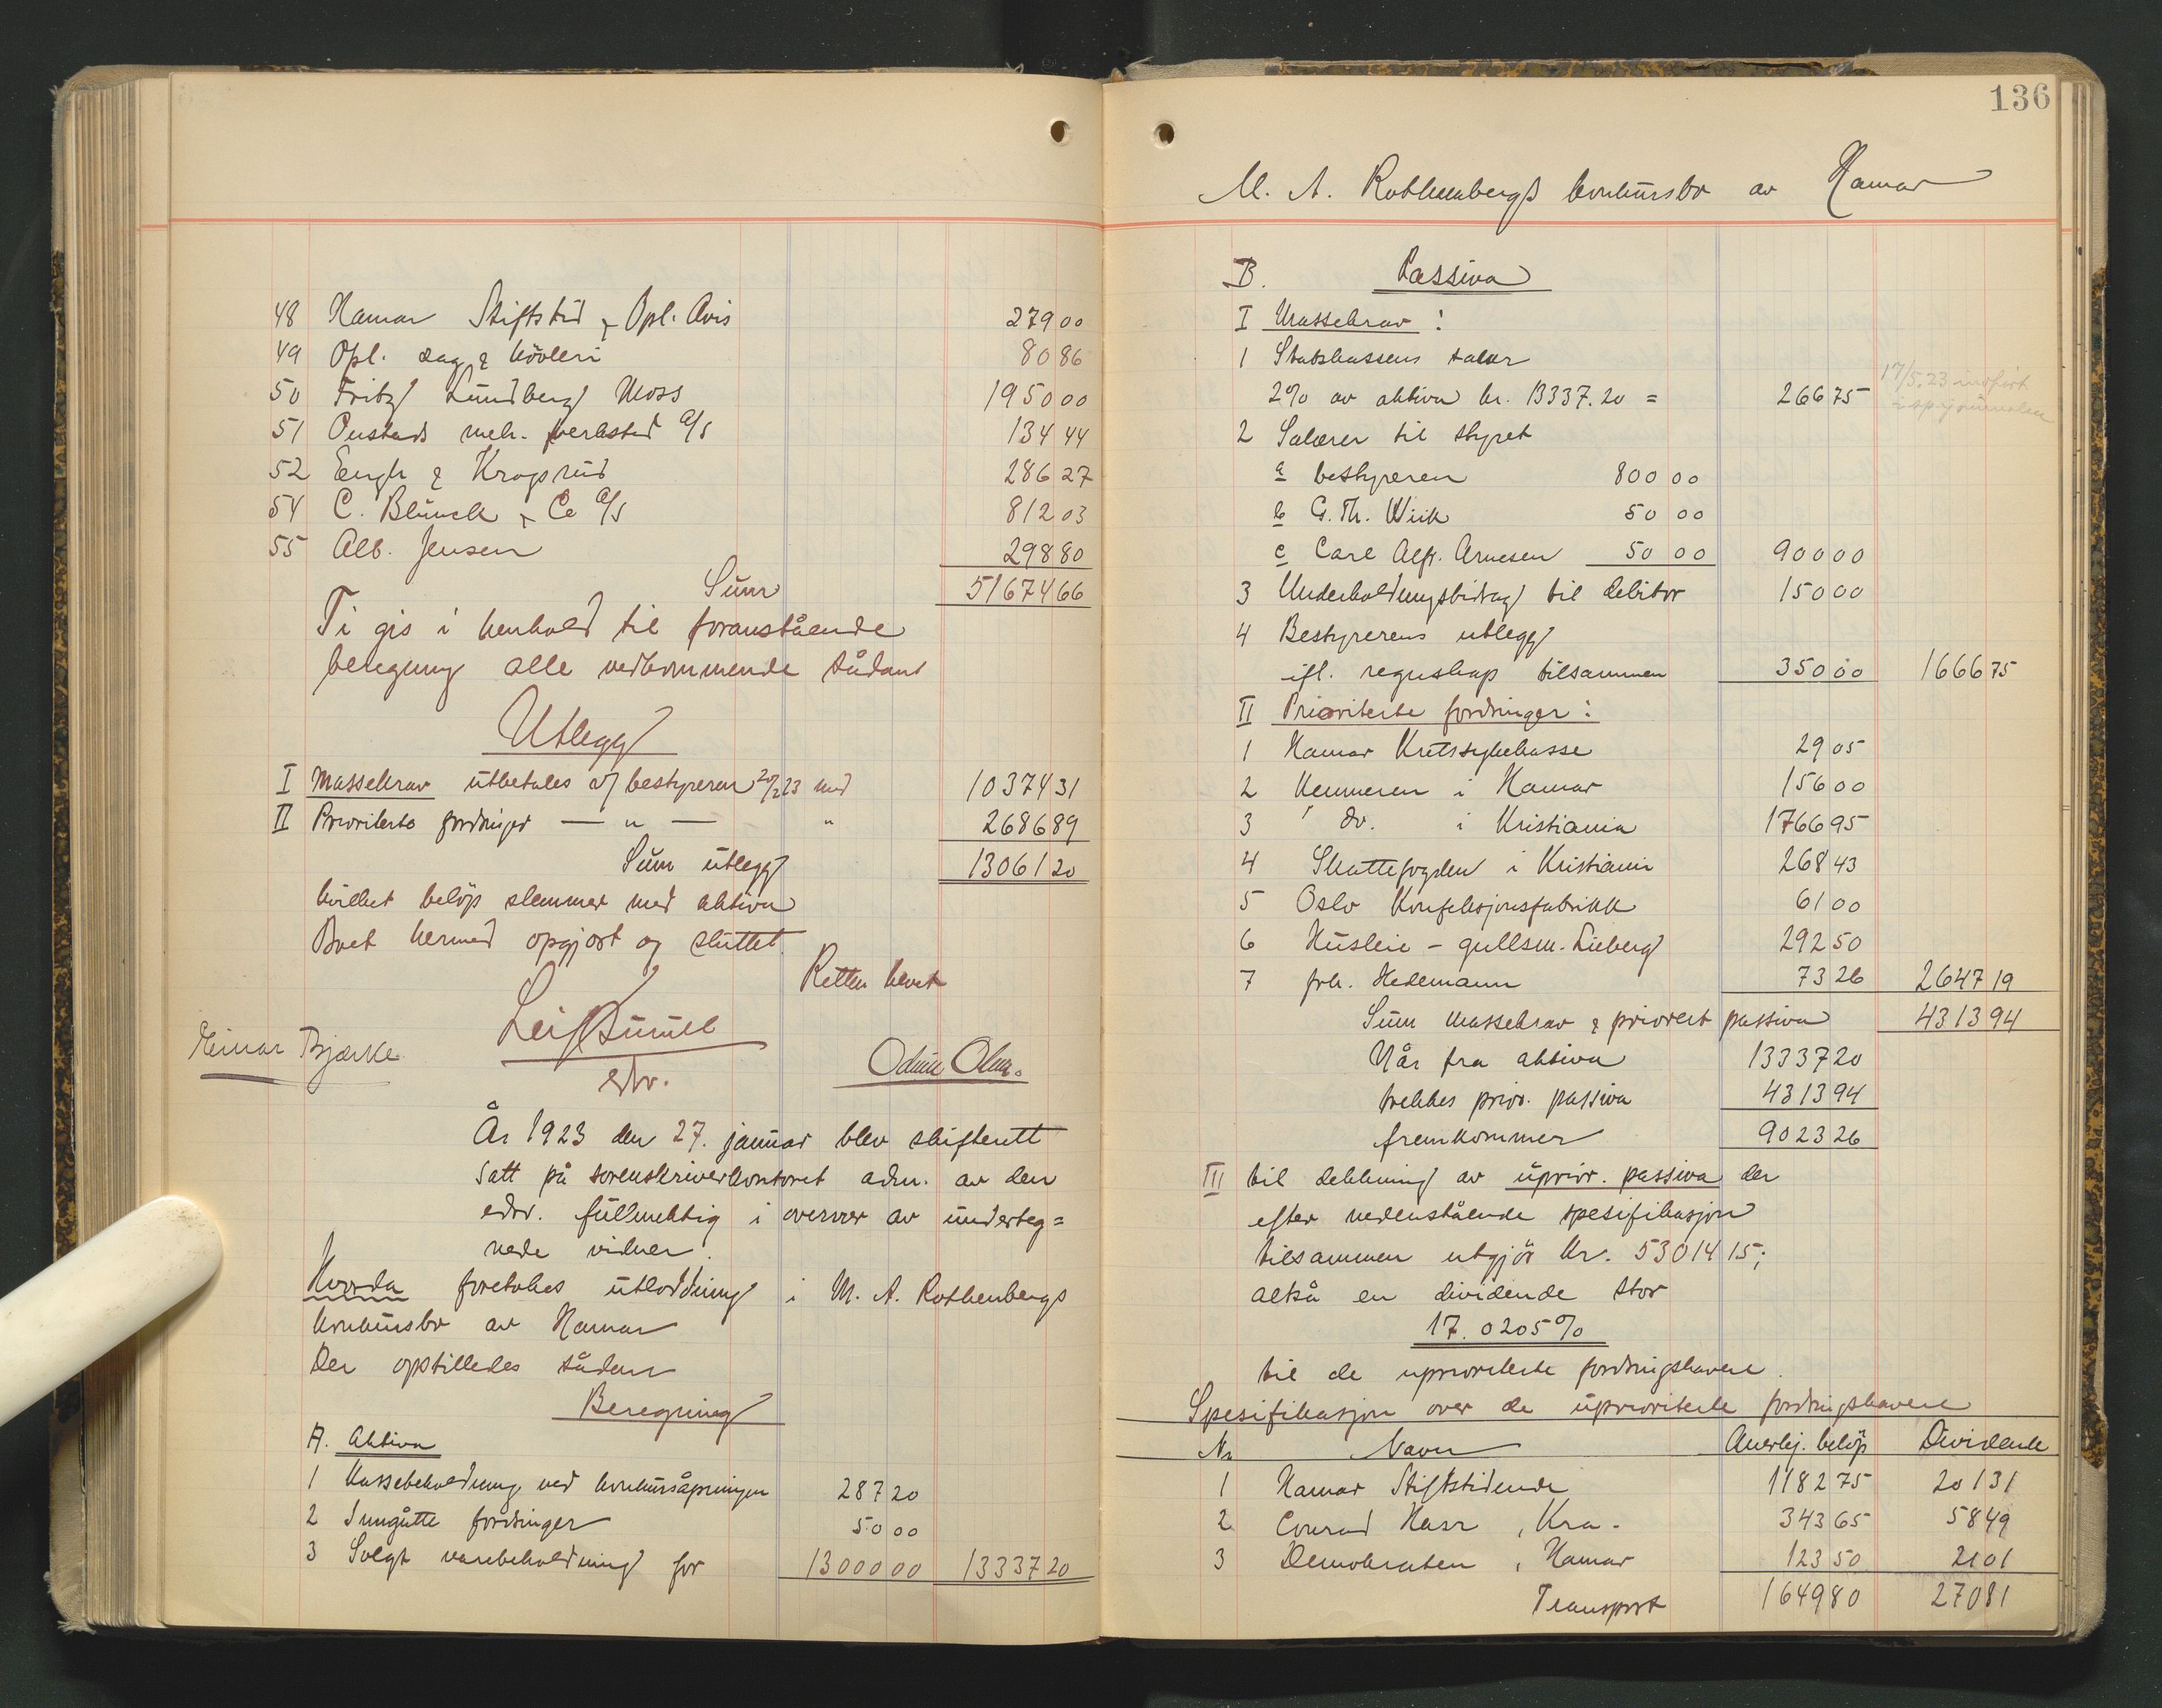 48 Hamar Stiftstid & Opl. Avis 279 00
49 Opl. sag & hövleri 80 86
50 Fritz Lundberg Moss 1950 00
51 mek. verksted A/S 134 44
52 Engh & Krogsrud 286 27
54 C. Blunck & Co A/S 812 03
55 Alb. Jensen 298 80
Sum 51674 66
Ti gis i henhold til foranstående
beregning alle vedkommende sådant
Utlegg
I Massekrav utbetales av bestyreren 20/2 23 med 10374 31
II Prioriterte fordringer — " — " 2686 89
Sum utlegg 13061 20
hvilket beløp stemmer med aktiva
Boet hermed opgjort og sluttet.
Retten hevet
Einar Bjærke
edv.
År 1923 den 27. januar blev skifterett
satt på sorenskriverkontoret adm. av den
edsv. fullmektig i overvær av underteg=
nede vidner.
Hvorda foretokes utloddning i M. A. Rothenbergs
konkursbo av Hamar
Der opstilledes sådan
Beregning
A. Aktiva
1 Kassebeholdning ved konkursåpningen 287 20
2 Inngåtte fordringer 50 00
3 Solgt varebeholdning for 13000 00 13337 20
136
M. A. Rothenbergs konkursbo av Hamar
B. Passiva
I Massekrav :
1 Statskassens salær
2% av aktiva kr. 13337.20 = 266 75
17/5.23 indført
2 Salærer til styret
a bestyreren 800 00
b G. Th. Wiik 50 00
c Carl Alf. Arnesen 50 00 900 00
3 Underholdningsbidrag til debitor 150 00
4 Bestyrerens utlegg
ifl. regnskap tilsammen 350 00 1666 75
II Prioriterte fordringer :
1 Hamar Kretssykekasse 29 05
2 Kemneren i Hamar 156 00
3 do. i Kristiania 1766 95
4 Skattefogden i Kristiania 268 43
5 Oslo Konfeksjonsfabrikk 61 00
6 Husleie - gullsm. Lieberg 292 50
7 frk. Hedemann 73 26 2647 19
Sum massekrav & priorert passiva 4313 94
Når fra aktiva 13337 20
trekkes prior. passiva 4313 94
fremkommer 9023 26
III til dekkning av uprior. passiva der
efter nedenstående spesifikasjon
tilsammen utgjör kr. 53014 15;
altså en dividende stor
17.0205%
til de uprioriterte fordringshavere.
Spesifikasjon over de uprioriterte fordringshavere
No Navn Anerkj. beløp Dividende
1 Hamar Stiftstidende 1182 75 201 31
2 Conrad , Kra. 343 65 58 49
3 Demokraten , Hamar 123 50 21 01
Transport 1649 80 270 81